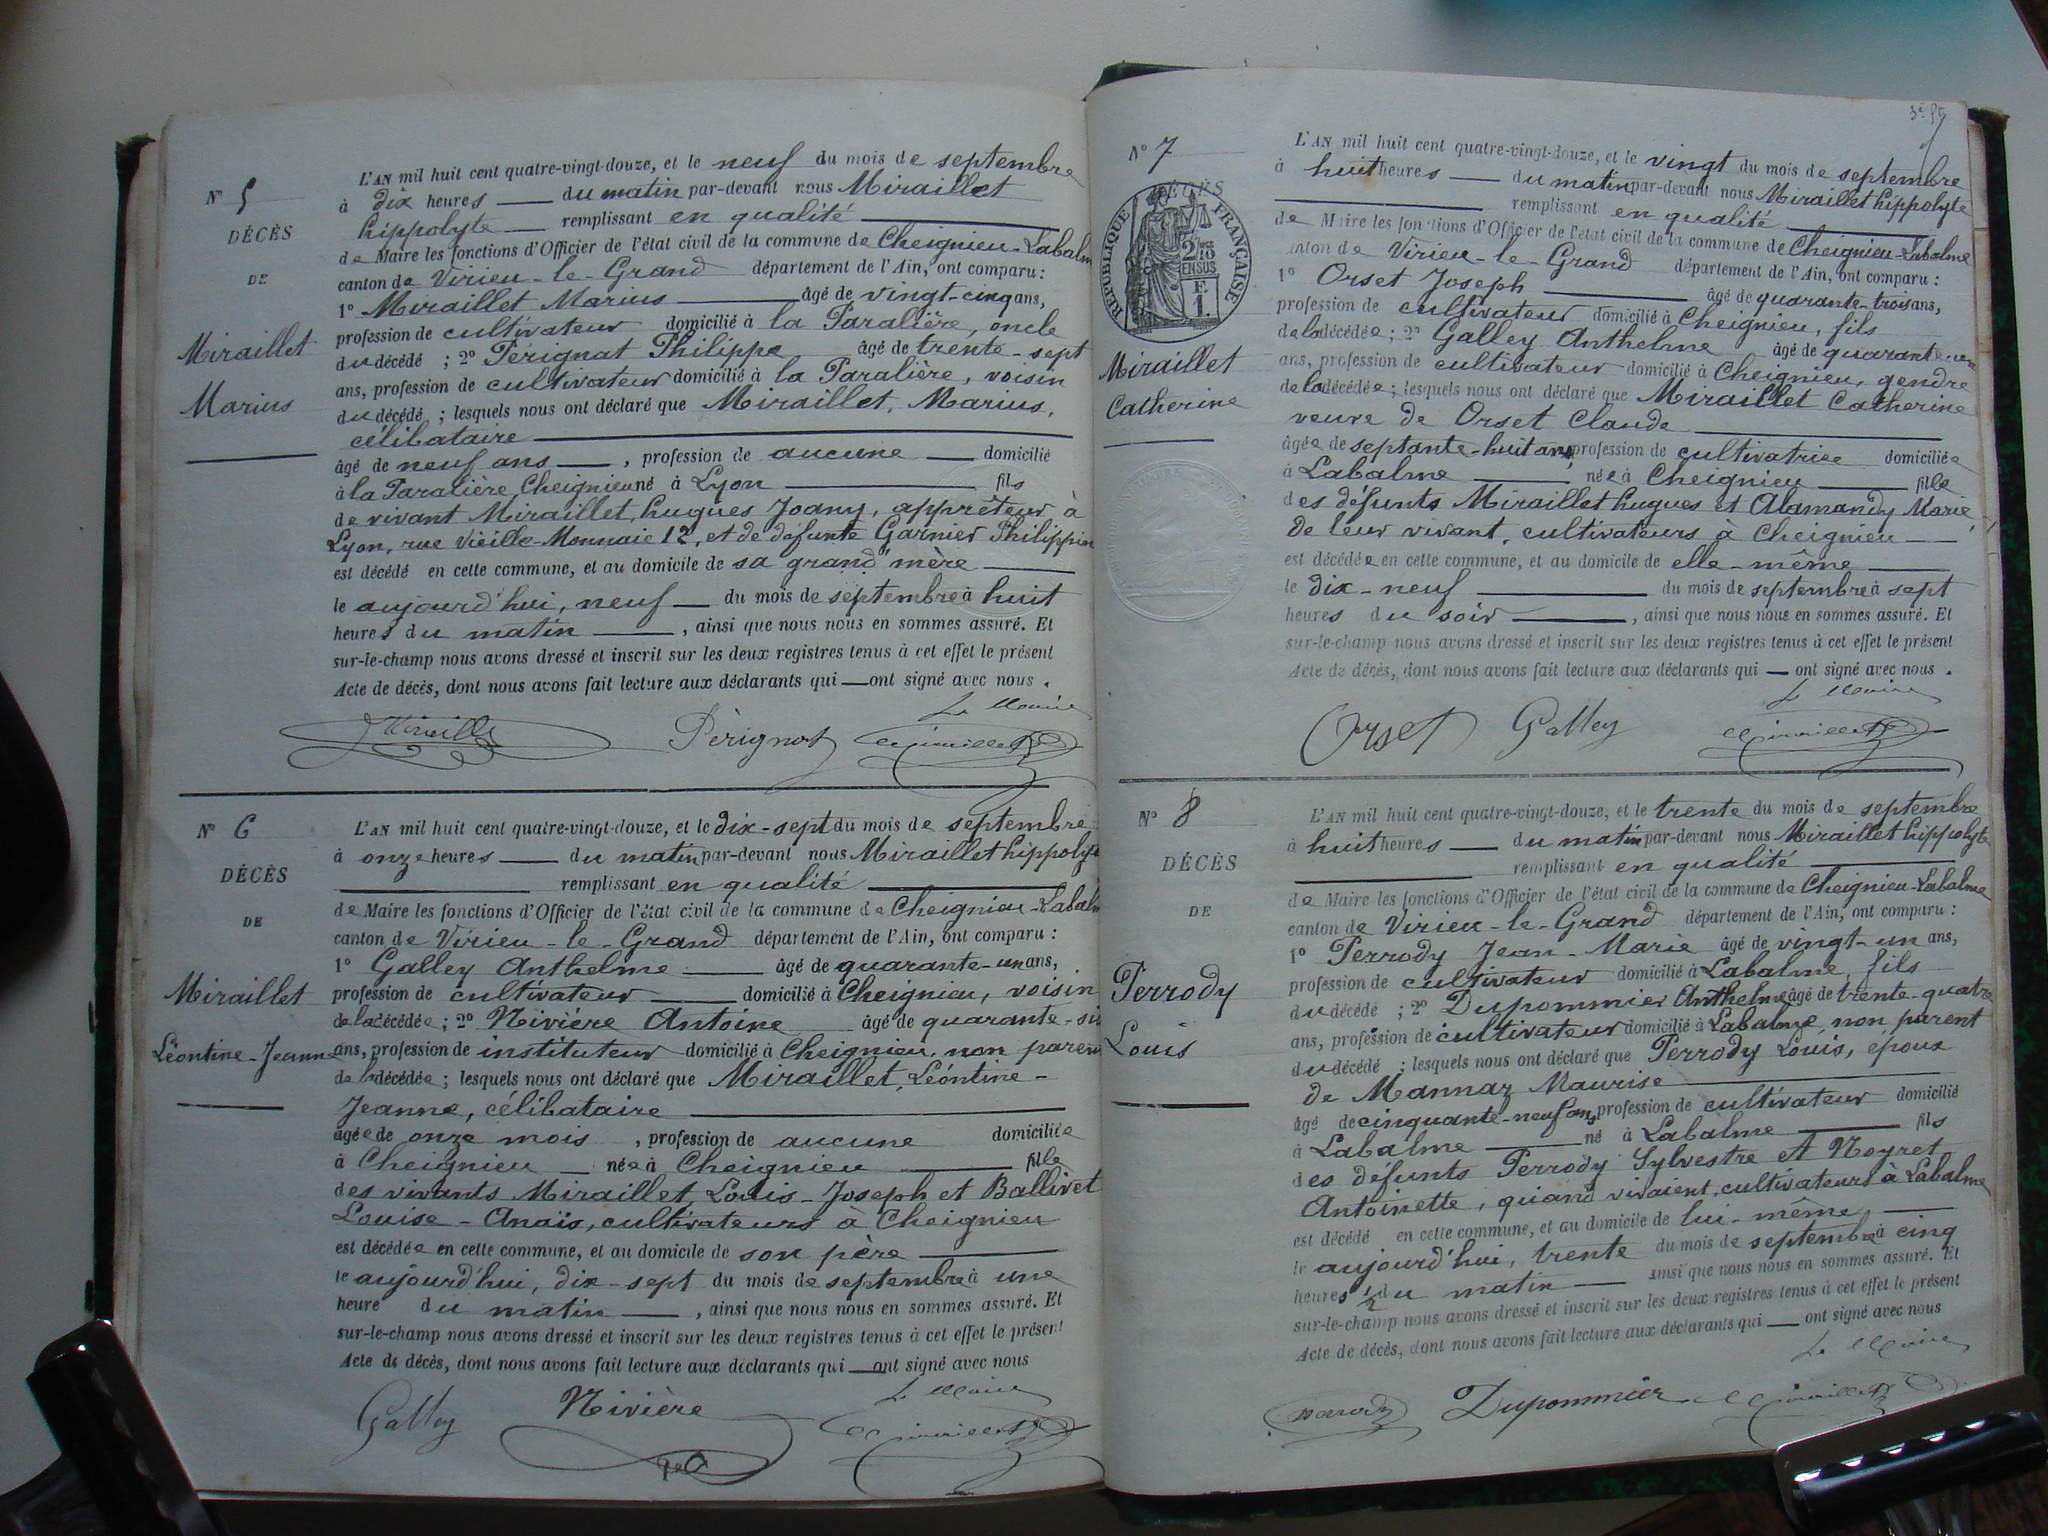 N° 5
DÉCÈS
DE
Miraillet
Marius
L'AN mil huit cent quatre-vingt-douze, et le neuf du mois de septembre
à dix heures du matin par-devant nous Miraillet
hippolyte remplissant en qualité
de Maire les fonctions d'Officier de l'état civil de la commune de Cheignieu-Labalme
canton de Virieu-le-Grand département de l'Ain, ont comparu :
1° Miraillet Marius âgé de vingt-cinq ans,
profession de cultivateur domicilié à la Paralière, oncle
du décédé ; 2° Pérignat Philippe âgé de trente-sept
ans, profession de cultivateur domicilié à la Paralière, voisin
du décédé ; lesquels nous ont déclaré que Miraillet, Marius,
célibataire
âgé de neuf ans, profession de aucune domicilié
à la Paralière, Cheignieu né à Lyon fils
de vivant Miraillet, hugues Joany, apprêteur à
Lyon, rue Vieille-Monnaie 12, et de défunte Garnier Philippin
est décédé en cette commune, et au domicile de sa grand'mère
le aujourd'hui, neuf du mois de septembre à huit
heures du matin, ainsi que nous nous en sommes assuré. Et
sur-le-champ nous avons dressé et inscrit sur les deux registres tenus à cet effet le présent
Acte de décès, dont nous avons fait lecture aux déclarants qui ont signé avec nous.
Le Maire
Miraillet Pérignat Miraillet
N° 6
DÉCÈS
DE
Miraillet
Léontine-Jeanne
L'AN mil huit cent quatre-vingt-douze, et le dix-sept du mois de septembre
à onze heures du matin par-devant nous Miraillet hippolyte
remplissant en qualité
de Maire les fonctions d'Officier de l'état civil de la commune de Cheignieu-Labalme
canton de Virieu-le-Grand département de l'Ain, ont comparu :
1° Galley Anthelme âgé de quarante-un ans,
profession de cultivateur domicilié à Cheignieu, voisin
de la décédée ; 2° Nivière Antoine âgé de quarante-six
ans, profession de instituteur domicilié à Cheignieu, non parent
de la décédée ; lesquels nous ont déclaré que Miraillet, Léontine-
Jeanne, célibataire
âgée de onze mois, profession de aucune domiciliée
à Cheignieu née à Cheignieu fille
des vivants Miraillet, Louis-Joseph et Ballivet
Louise-Anaïs, cultivateurs à Cheignieu
est décédée en cette commune, et au domicile de son père
le aujourd'hui, dix-sept du mois de septembre à une
heure du matin, ainsi que nous nous en sommes assuré. Et
sur-le-champ nous avons dressé et inscrit sur les deux registres tenus à cet effet le présent
Acte de décès, dont nous avons fait lecture aux déclarants qui ont signé avec nous
Le Maire
Galley Nivière Miraillet
N° 7
DÉCÈS
RÉPUBLIQUE FRANÇAISE
2/10 EN SUS
F. 1.
Miraillet
Catherine
L'AN mil huit cent quatre-vingt-douze, et le vingt du mois de septembre
à huit heures du matin par-devant nous Miraillet hippolyte
remplissant en qualité
de Maire les fonctions d'Officier de l'état civil de la commune de Cheignieu-Labalme
canton de Virieu-le-Grand département de l'Ain, ont comparu :
1° Orset Joseph âgé de quarante-trois ans,
profession de cultivateur domicilié à Cheignieu, fils
de la décédée ; 2° Galley Anthelme âgé de quarante-un
ans, profession de cultivateur domicilié à Cheignieu, gendre
de la décédée ; lesquels nous ont déclaré que Miraillet Catherine
veuve de Orset Claude
âgée de septante-huit ans, profession de cultivatrice domiciliée
à Labalme née à Cheignieu fille
des défunts Miraillet hugues et Alamandy Marie,
De leur vivant, cultivateurs à Cheignieu
est décédée en cette commune, et au domicile de elle-même
le dix-neuf du mois de septembre à sept
heures du soir, ainsi que nous nous en sommes assuré. Et
sur-le-champ nous avons dressé et inscrit sur les deux registres tenus à cet effet le présent
Acte de décès, dont nous avons fait lecture aux déclarants qui ont signé avec nous.
Le Maire
Orset Galley Miraillet
N° 8
DÉCÈS
DE
Perrody
Louis
L'AN mil huit cent quatre-vingt-douze, et le trente du mois de septembre
à huit heures du matin par-devant nous Miraillet hippolyte
remplissant en qualité
de Maire les fonctions d'Officier de l'état civil de la commune de Cheignieu-Labalme
canton de Virieu-le-Grand département de l'Ain, ont comparu :
1° Perrody Jean-Marie âgé de vingt-un ans,
profession de cultivateur domicilié à Labalme, fils
du décédé ; 2° Dupommier Anthelme âgé de trente-quatre
ans, profession de cultivateur domicilié à Labalme, non parent
du décédé ; lesquels nous ont déclaré que Perrody Louis, époux
de Mannaz Maurise
âgé de cinquante-neuf ans, profession de cultivateur domicilié
à Labalme né à Labalme fils
des défunts Perrody Sylvestre et Neyret
Antoinette, quand vivaient, cultivateurs à Labalme
est décédé en cette commune, et au domicile de lui-même
le aujourd'hui, trente du mois de septembre à cinq
heures 1/2 du matin ainsi que nous nous en sommes assuré. Et
sur-le-champ nous avons dressé et inscrit sur les deux registres tenus à cet effet le présent
Acte de décès, dont nous avons fait lecture aux déclarants qui ont signé avec nous
Le Maire
Perrody Dupommier Miraillet